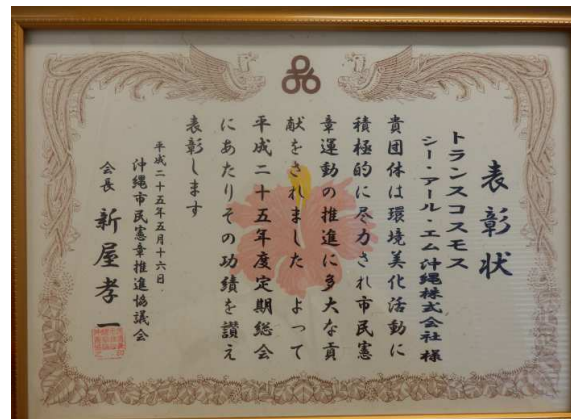 表彰状
トランスコスモス
シー・アール・エム沖縄株式会社 様
貴団体は環境美化活動に
積極的に尽力され市民憲
章運動の推進に多大な貢
献をされました よって
平成二十五年度定期総会
にあたりその功績を讃え
表彰します
平成二十五年五月十六日
沖縄市民憲章推進協議会
会長 新屋孝一